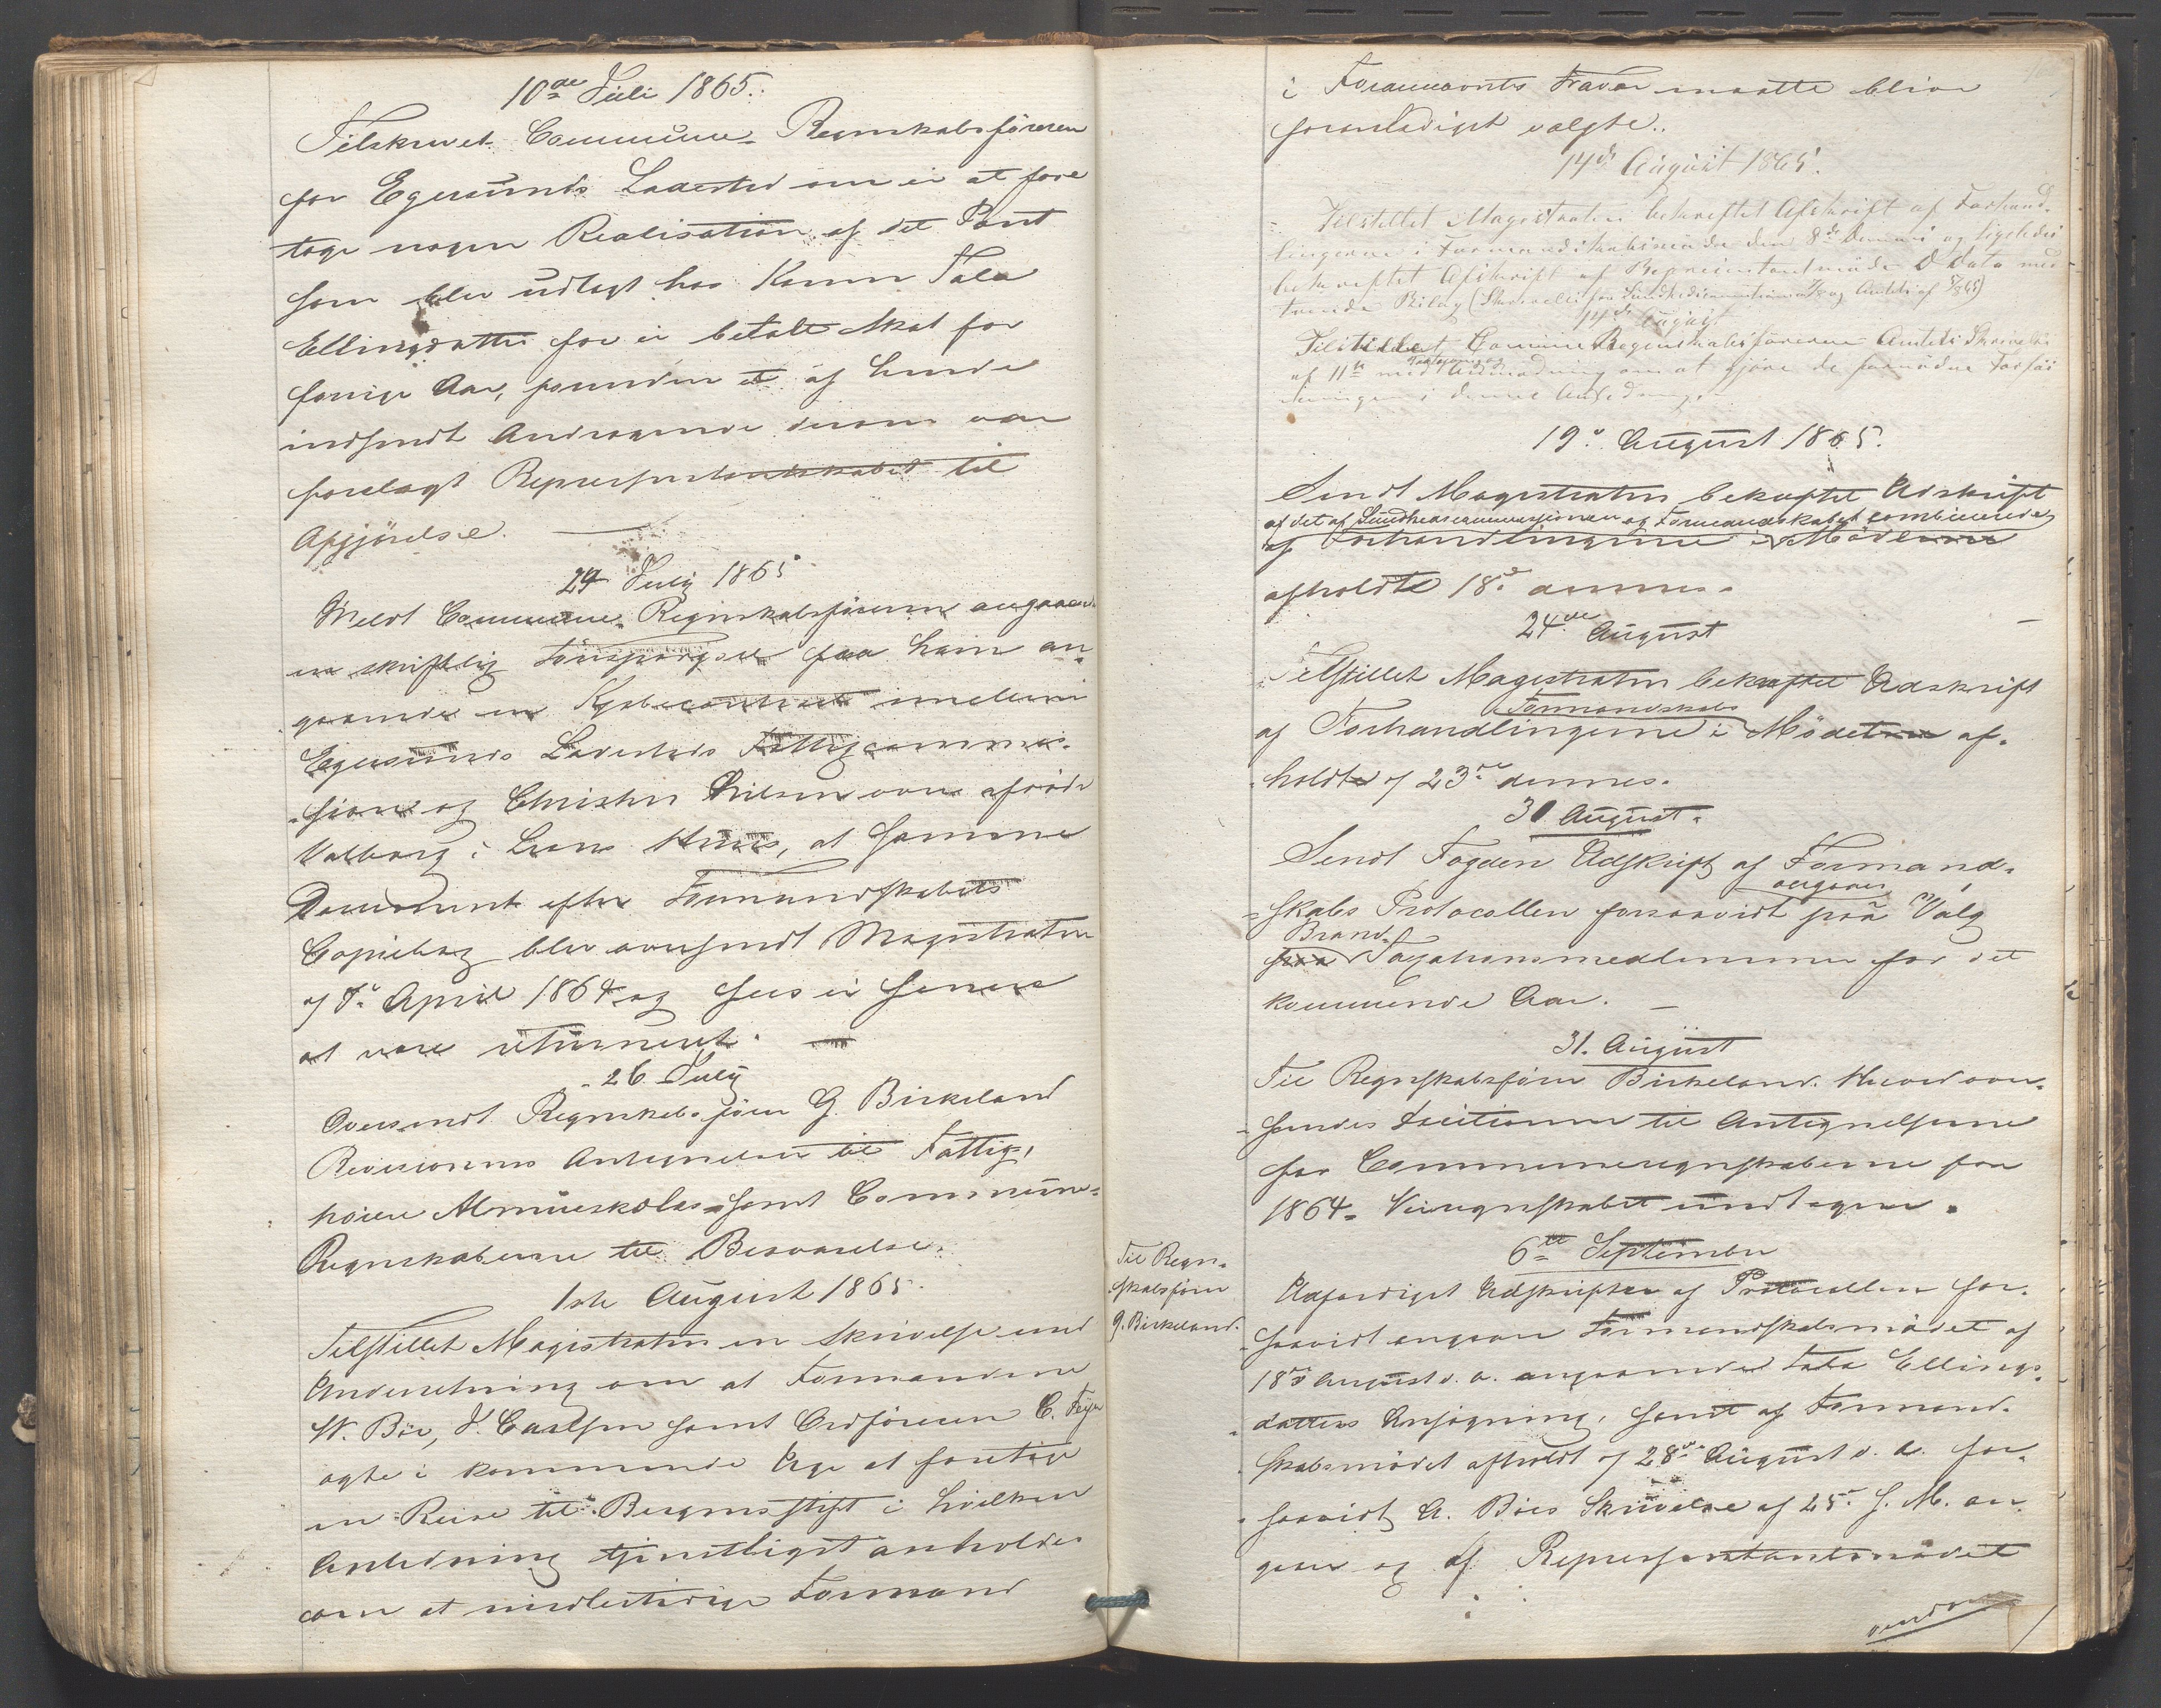 10de Juli 1865.
Tilskrevet Commune-Regnskabsføreren
for Egersunds Ladested om ei at fore
tage nogen Realisation af det Pant
som blev udlagt hos Konen Tala
Ellingsdatter for ei betalt Skat for
forrige Aar, forinden et af hende
indsendt Andragende derom var
forelagt Repræsentantskabet til
Afgjörelse.
24 July 1865
Meldt Commune-Regnskabsføreren angaaende
en skriftlig Forespørgsel fra ham an-
gaaende en Kjøbecontract imellem
Egersunds Ladesteds Fattigcommis-
sion og Christen Nilsen over afdøde
Valborg i Lunds Huus, at samme
Document efter Formandskabets
Copiebog blev oversendt Magistraten
7de April 1864 og sees ei senere
at være returneret.
26 July
Oversendt Regnskabsfører G. Birkeland
Revisionens Antegnelser til Fattig-,
høiere Almueskoles- samt Commune-
Regnskaberne til Besvarelse.
1ste August 1865.
Tilstillet Magistraten en Skrivelse med
Underretning om at Formændene
W. Böe, J. Carlsen samt Ordføreren C. Feyer
agte i kommende Uge at foretage
en Reise til Bergensstift i hvilken
Anledning tjenstligst anholdes
om at midlertidige Formænd
i Formænds Fravær maatte blive
foranlediget valgte..
14de August 1865.
Tilstillet Magistraten bekreftet Afskrift af Forhand-
lingerne i Formandskabsmøde den 8de dennes og ligeledes
bekreftet Afskrift af Repræsentantmøde D Dato med
tvende Bilag (Skrivelse fra Sundhedscommissionen og Amtets af 65)
14de August
Tilstillet Commune Regnskabsføreren Amtets Skrivelse
af 11te med Anmodning om at gjøre de fornødne Forføi
ninger i denne Anledning.
19de August 1865.
Sendt Magistraten bekræftet Udskrift
af det af Sundhedscommissionen og Formandskabet combinerede
af Forhandlingerne i Mödet
afholdte 18de dennes.
24de August
Tilstillet Magistraten bekræftet Udskrift
Formandskabs
af Forhandlingerne i Mödet af-
holdt 23de dennes.
30 August.
Sendt Fogden Udskrift af Formand-
angaaer
skabs Protocollen forsaavidt paa Valg
Brand-
paa Taxationsmedlemmer for det
kommende Aar.
31. August
Til Regnskabsfører Birkeland. Hvorved over-
sendes Decisioner til Antegnelserne
for Communeregnskaberne for
1864. Veiregnskabet undtagen.
6te September
Til Regn-
skabsfører
G. Birkeland.
Udfærdiget Udskrifter af Protocollen for-
saavidt angaaer Formandskabsmødet af
18de August d. a. angaaende Tala Ellings-
datters Ansøgning, samt af Formand-
skabsmødet afholdt 28de August d. a. for-
saavidt A. Böes Skrivelse af 25de s. M. an-
gaaer og af Repræsentantmödet